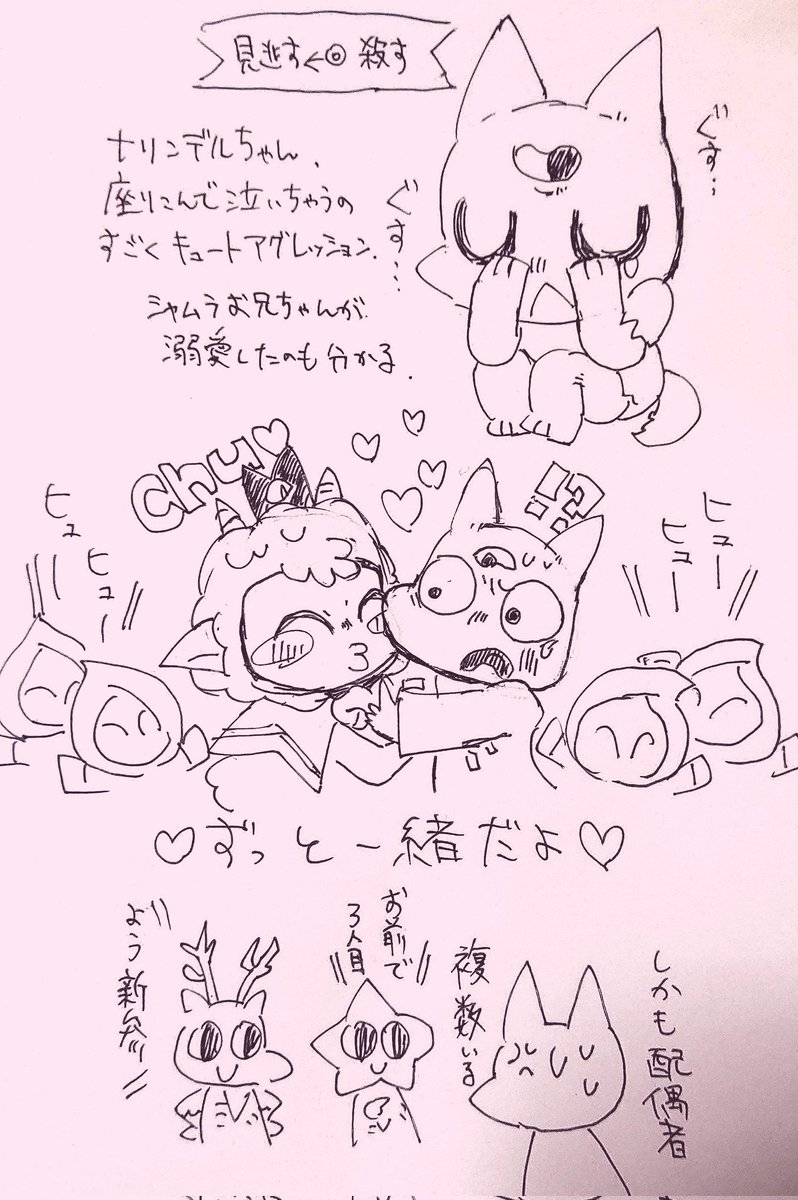 見逃す←◎ 殺す
ナリンデルちゃん、
座りこんで泣いちゃうの
すごくキュートアグレッション.
シャムラお兄ちゃんが
溺愛したのも分かる.
ぐす…
ぐす…
chu♡
!?
ヒュー
ヒュー
ヒュー
ヒュー
♡ずっと一緒だよ♡
しかも配偶者
複数いる
お前で
3人目
よう新参